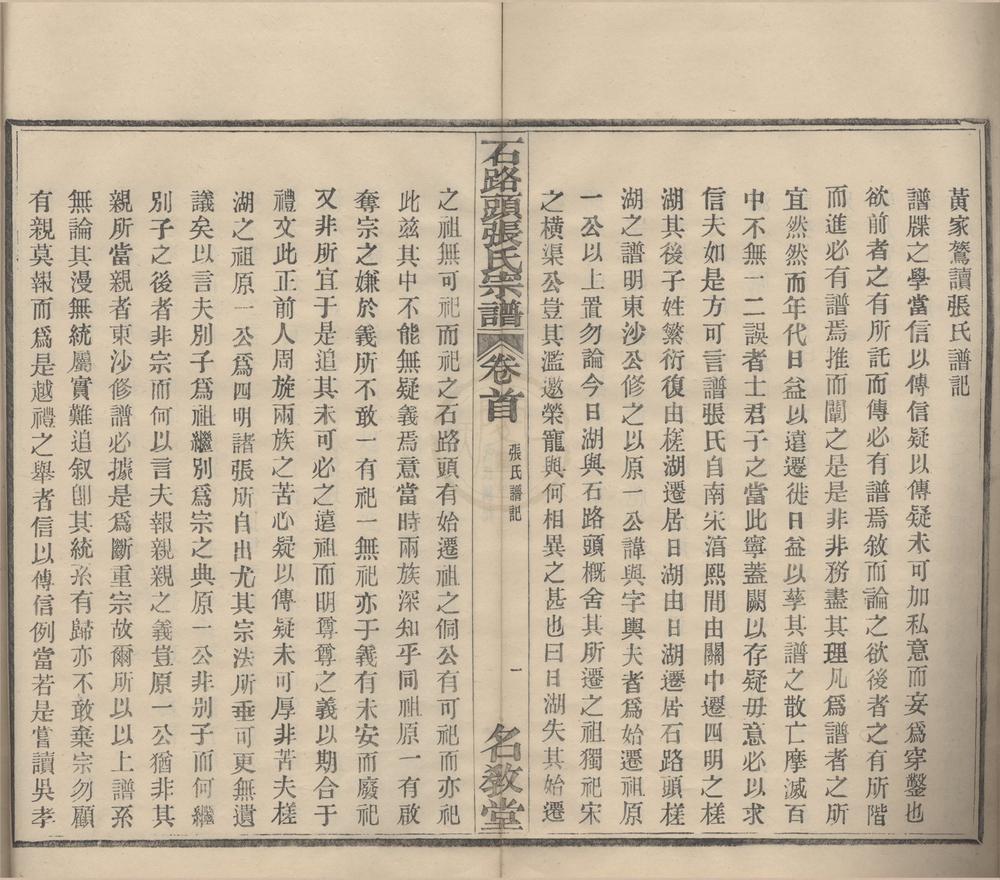 黃家鶩讀張氏譜記
譜牒之學當信以傳信疑以傳疑未可加私意而妄爲穿鑿也
欲前者之有所託而傳必有譜焉敘而論之欲後者之有所階
而進必有譜焉推而闡之是是非非務盡其理凡爲譜者之所
宜然然而年代日益以遠遷徙日益以孳其譜之散亡摩滅百
中不無一二誤者士君子之當此寧蓋闕以存疑毋意必以求
信夫如是方可言譜張氏自南宋淳熙間由關中遷四明之槎
湖其後子姓繁衍復由槎湖遷居日湖由日湖遷居石路頭槎
湖之譜明東沙公修之以原一公諱與字輿夫者爲始遷祖原
一公以上置勿論今日湖與石路頭概舍其所遷之祖獨祀宋
之橫渠公豈其濫邀榮寵與何相異之甚也曰日湖失其始遷
石路頭張氏宗譜 卷首 張氏譜記 一 名敎堂
之祖無可祀而祀之石路頭有始遷祖之侗公有可祀而亦祀
此兹其中不能無疑義焉意當時兩族深知乎同祖原一有啟
奪宗之嫌於義所不敢一有祀一無祀亦于義有未安而廢祀
又非所宜于是追其未可必之遠祖而明尊尊之義以期合于
禮文此正前人周旋兩族之苦心疑以傳疑未可厚非苦夫槎
湖之祖原一公爲四明諸張所自出尤其宗法所垂可更無遺
議矣以言夫別子爲祖繼別爲宗之典原一公非別子而何繼
別子之後者非宗而何以言夫報親親之義豈原一公猶非其
親所當親者東沙修譜必據是爲斷重宗故爾所以以上譜系
無論其漫無統屬實難追叙卽其統系有歸亦不敢棄宗勿顧
有親莫報而爲是越禮之舉者信以傳信例當若是嘗讀吳孝